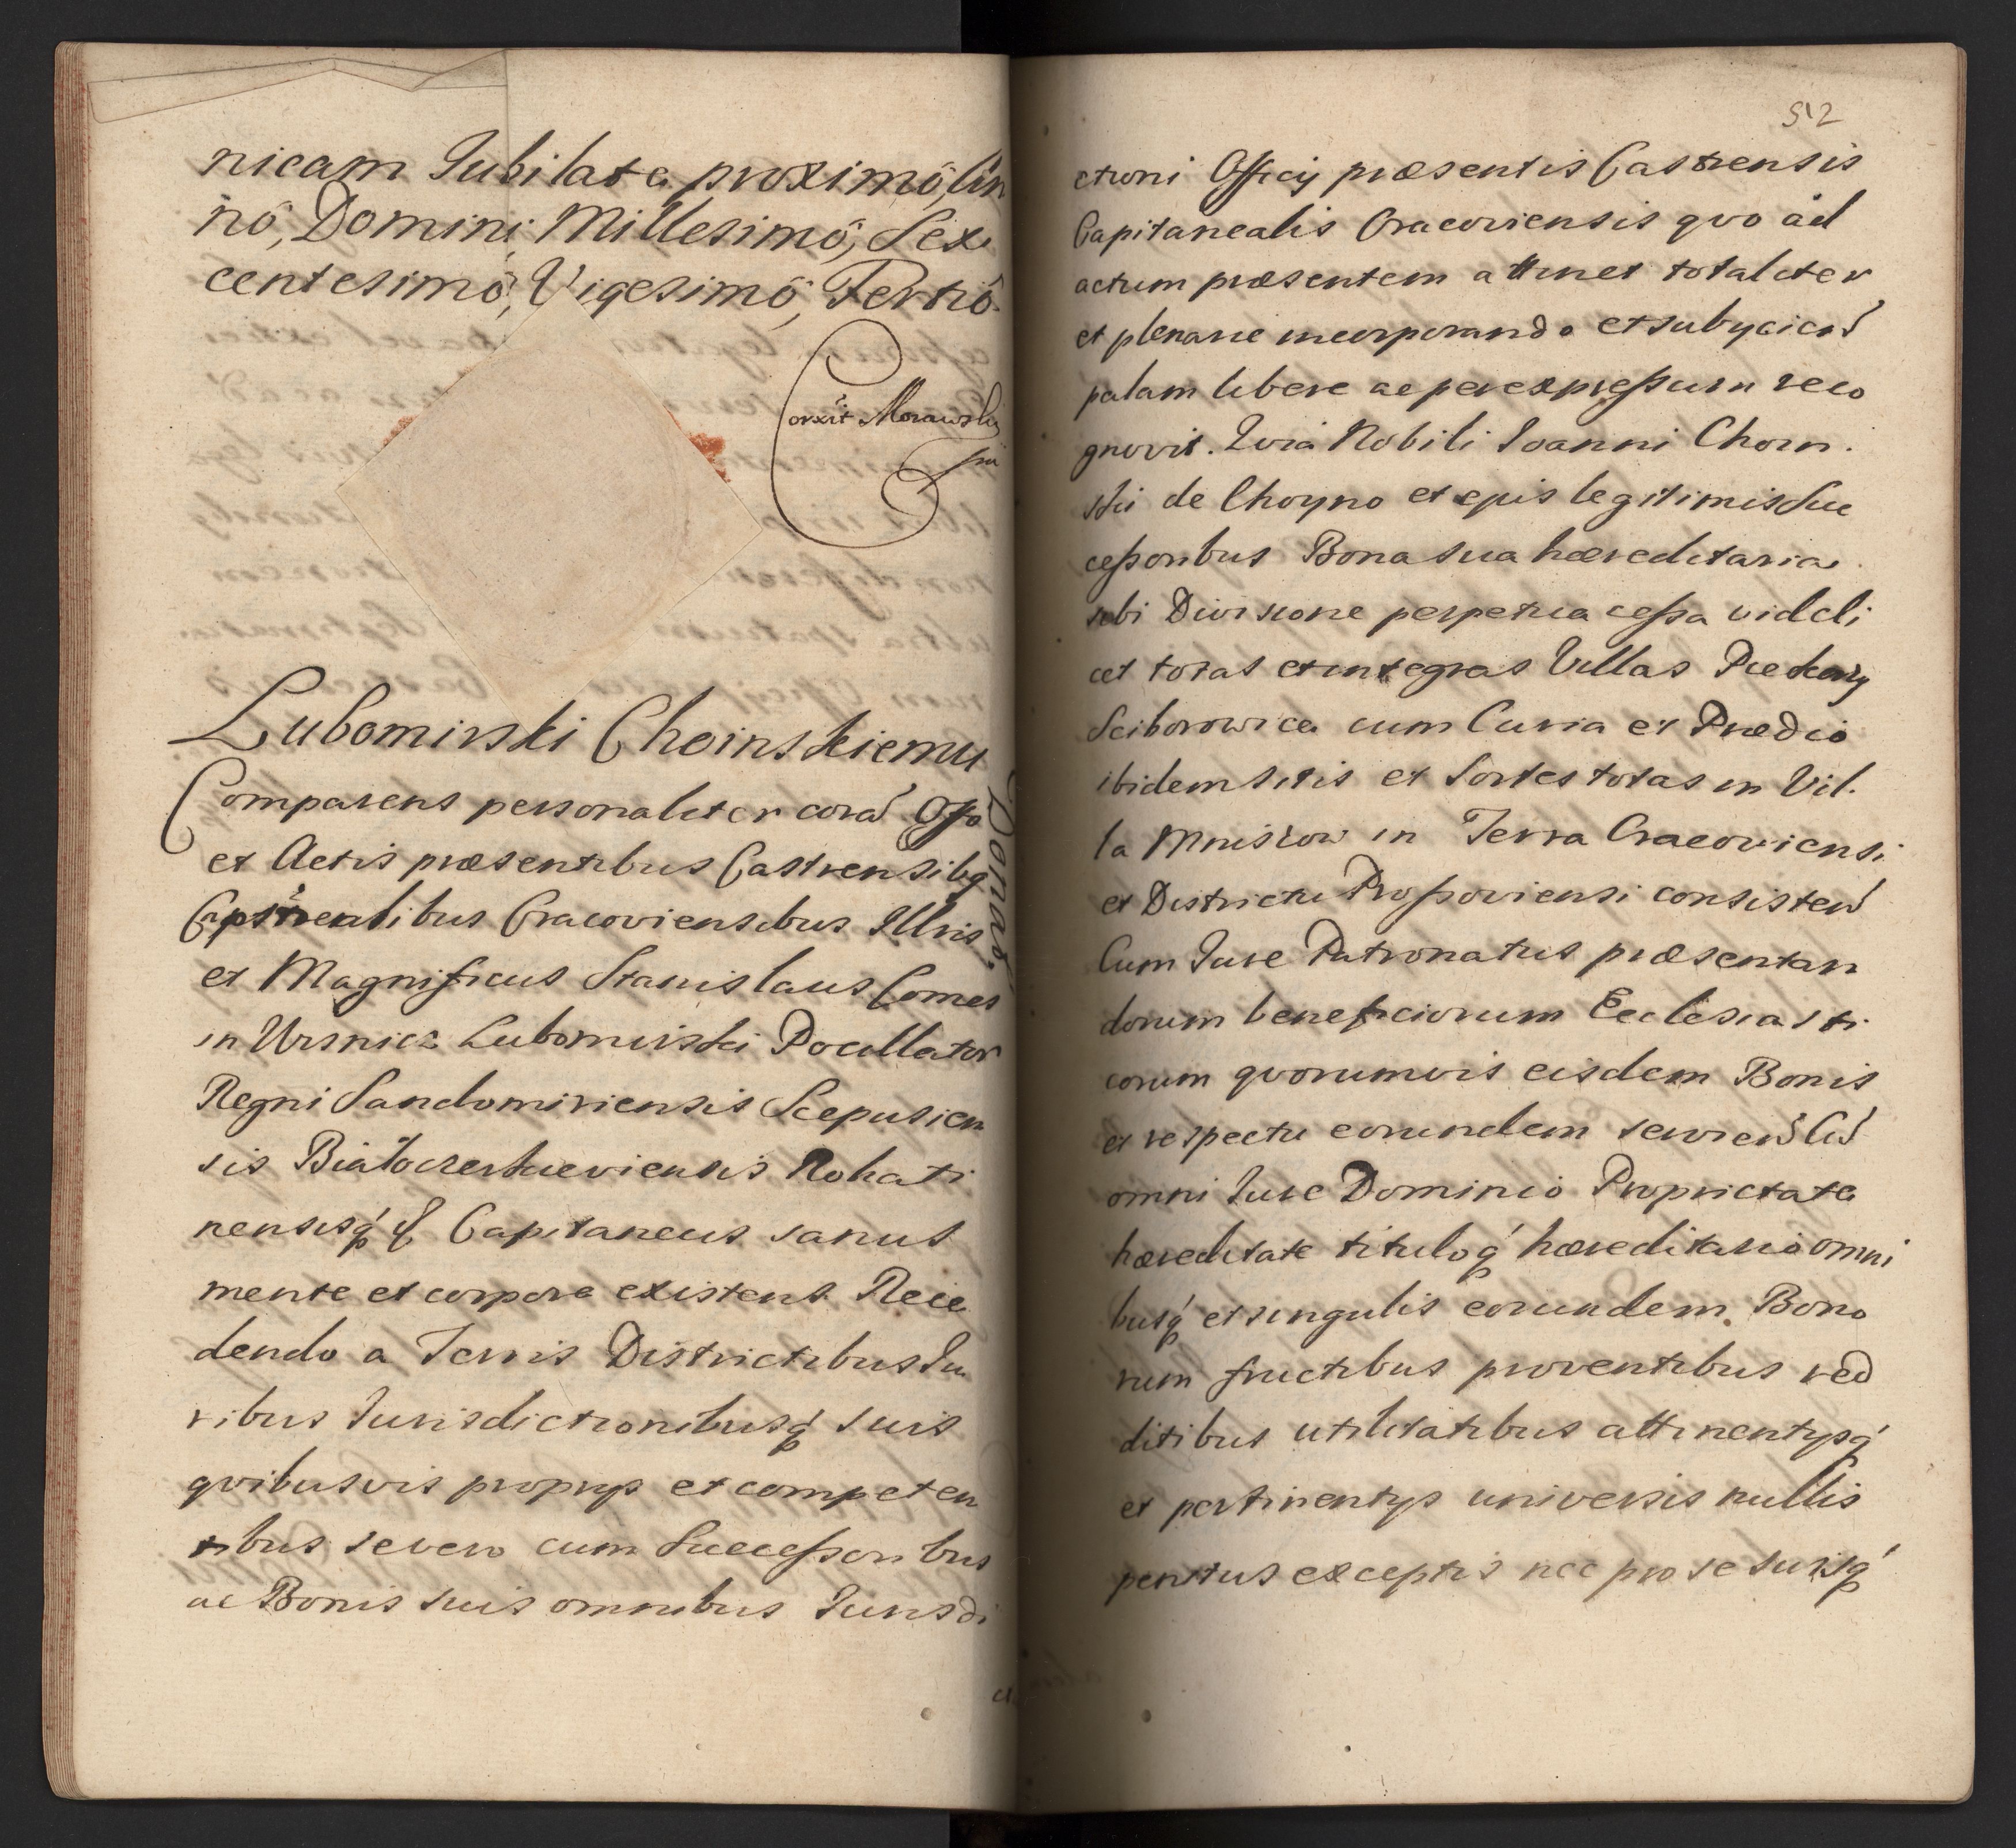 nicam Jubilate proximô, An
nô, Domini Millesimô, Sex
centesimô, Vigesimô, Tertiô.
Corrxit Morawsky
Lubomirski Choinskiemu
Donat.
Comparens personaliter corã Offo
et Actis præsentibus Castrensibq
Capitnealibus Cracoviensibus Illris
et Magnificus Stanislaus Comes
in Wisnicz Lubomirski Pocillator
Regni Sandomiriensis Scepusien
sis Białocerkieviensis Rohati
nensisq́ & Capitaneus sanus
mente et corpore existens Rece
dendo a Terris Districtibus Ju
ribus Jurisdictionibusq́ suis
qvibusvis proprys et competen
tibus se vero cum Successoribus
ac Bonis suis omnibus Jurisdi
512
ctioni Officy præsentis Castrensis
Capitanealis Cracoviensis qvo ad
actum præsentem attinet totaliter
et plenarie incorporando et subyciend
palam libere ac per expressum reco
gnovit. Qvia Nobili Joanni Choin
ski de Choyno et epis legitimis Suc
cessoribus Bona sua hæreditaria
sibi Divisione perpetua cessa videli
cet totas et integras Villas Piekary
Sciborowice cum Curia et Prædio
ibidem sitis et Sortes totas in Vil
la Mniszow in Terra Cracoviensi
et Districtu Prossoviensi consisten
Cum Jure Patronatus præsentan
dorum beneficiorum Ecclesiasti
corum qvorumvis eisdem Bonis
et respectu eorundem servien Cũ
omni Jure Dominio Proprietate
hæreditate tituloq́ hæreditario omni
busq́ et singulis eorundem Bono
rum fructibus proventibus red
ditibus utilitatibus attinentysq́
et pertinentys universis nullis
penitus exceptis nec pro se suisq́